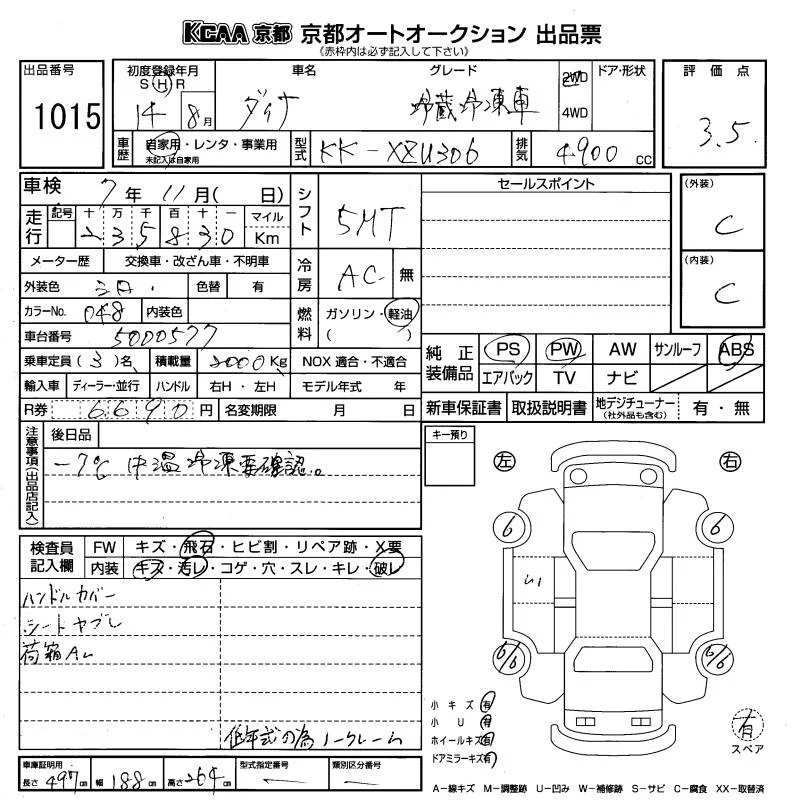 KCAA 京都 京都オートオークション 出品票
(赤枠内は必ず記入して下さい)
出品番号
1015
初度登録年月
S H R
14 8月
車名
ダイナ
グレード
冷蔵冷凍車
2WD
4WD
ドア・形状
評価点
3.5
車歴
自家用・レンタ・事業用
未記入は自家用
型式
KK-XZU306
排気
4900 CC
車検 7年 11月( 日)
走行
記号 十 万 千 百 十 一
マイル
Km
235830
メーター歴 交換車・改ざん車・不明車
外装色
色替 有
カラーNo. 048 内装色
車台番号 5000577
乗車定員 (3)名 積載量 2000Kg NOX 適合・不適合
輸入車 ディーラー・並行 ハンドル 右H・左H モデル年式 年
R券 6690円 名変期限 月 日
シフト 5MT
冷房 AC 無
燃料 ガソリン・軽油
( )
セールスポイント
(外装)
C
(内装)
C
純正装備品
PS PW AW サンルーフ ABS
エアバック TV ナビ
新車保証書 取扱説明書 地デジチューナー 有・無
(社外品も含む)
注意事項(出品店記入)
後日品
-7℃ 中温冷凍要確認。
検査員記入欄
FW キズ・飛石・ヒビ割・リペア跡・X要
内装 キズ・汚レ・コゲ・穴・スレ・キレ・破レ
ハンドルカバー
シートヤブレ
荷箱AL
低年式の為ノークレーム
車庫証明用
長さ 497cm 幅 188cm 高さ 264cm
型式指定番号 —
類別区分番号 —
キー預り
左 右
6 6
6/6 6/6
小キズ 有
小U 有
ホイールキズ 有
ドアミラーキズ 有
有
スペア
A—線キズ M—調整跡 U—凹み W—補修跡 S—サビ C—腐食 XX—取替済